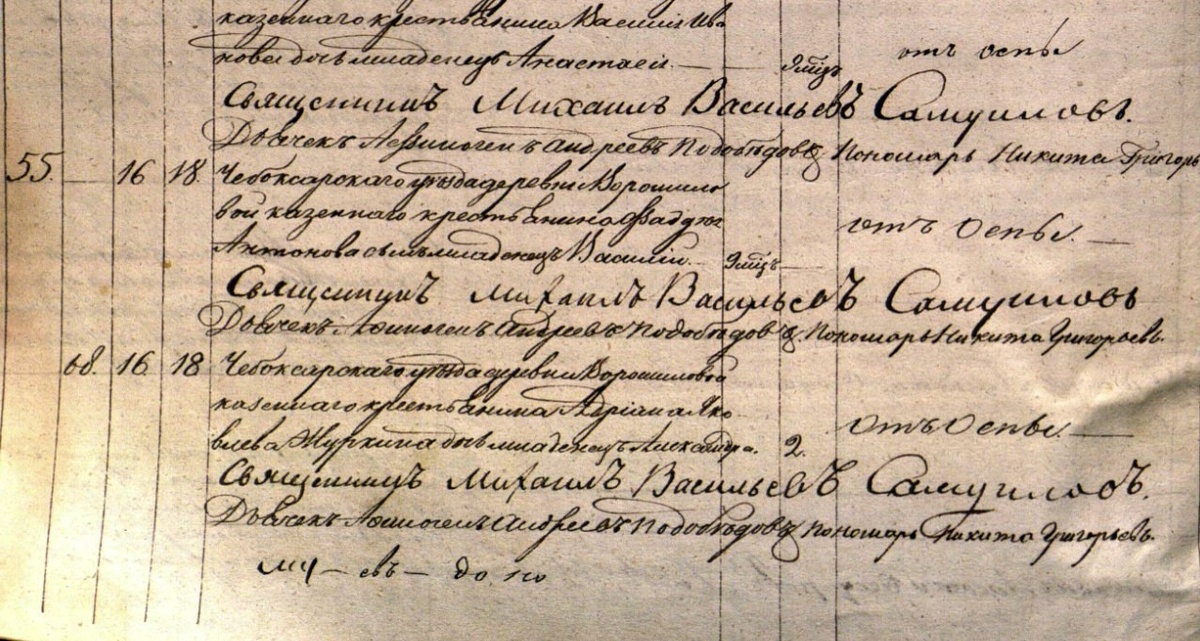 казеннаго крестьянина Василія Ива
нова дочь младенецъ Анастасія. 9 мѣц. отъ оспы
Священникъ Михаилъ Васильевъ Самуиловъ.
Дьячекъ Аѳиногенъ Андреевъ Подобѣдовъ Пономарь Никита Григорь
55. 16 18. Чебоксарскаго уѣзда деревни Ворошило
вой казеннаго крестьянина Фаддея отъ оспы.
Антонова сынъ младенецъ Василій. 9 мѣц.
Священникъ Михаилъ Васильевъ Самуиловъ
Дьячекъ Аѳиногенъ Андреевъ Подобѣдовъ Пономарь Никита Григорьевъ.
68. 16 18 Чебоксарскаго уѣзда деревни Ворошиловой
казеннаго крестьянина Адріана Яко отъ оспы.
влева Журкина дочь младенецъ Александра. 2.
Священникъ Михаилъ Васильевъ Самуиловъ.
Дьячекъ Аѳиногенъ Андреевъ Подобѣдовъ Пономарь Никита Григорьевъ.
евъ до по